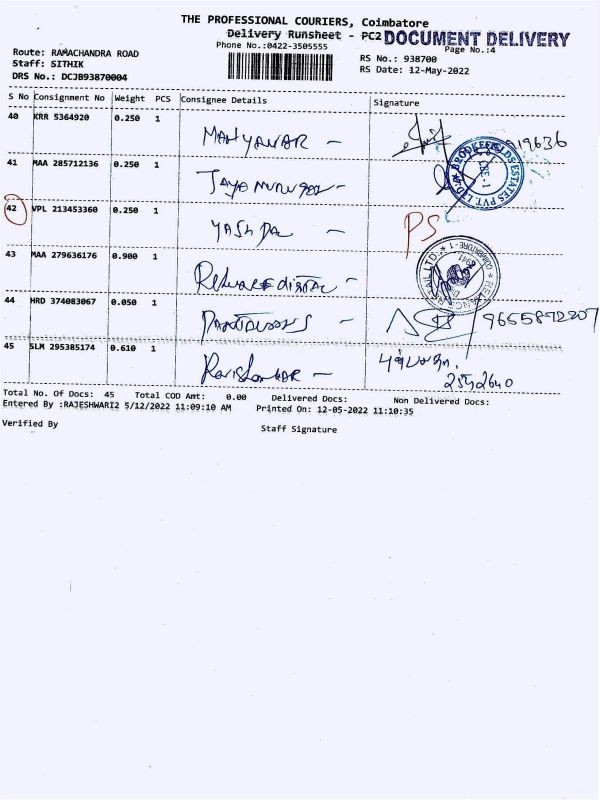 THE PROFESSIONAL COURIERS, Coimbatore
Delivery Runsheet - PC2 DOCUMENT DELIVERY
Phone No.:0422-3505555
Page No.:4
Route: RAMACHANDRA ROAD
RS No.: 938700
Staff: SITHIK
RS Date: 12-May-2022
DRS No.: DCJB93870004
S No Consignment No Weight PCS Consignee Details Signature
40 KRR 5364920 0.250 1
919636
41 MAA 285712136 0.250 1
BROOKEFIELDS ESTATES PVT. LTD.
CBE-1
42 VPL 213453360 0.250 1
YASh PAL - PS
43 MAA 279636176 0.900 1
COIMBATORE - 1
44 HRD 374083067 0.050 1
9655872207
45 SLM 295385174 0.610 1
Ravishankar -
Total No. Of Docs: 45 Total COD Amt: 0.00 Delivered Docs: Non Delivered Docs:
Entered By :RAJESHWARI2 5/12/2022 11:09:10 AM Printed On: 12-05-2022 11:10:35
Verified By
Staff Signature